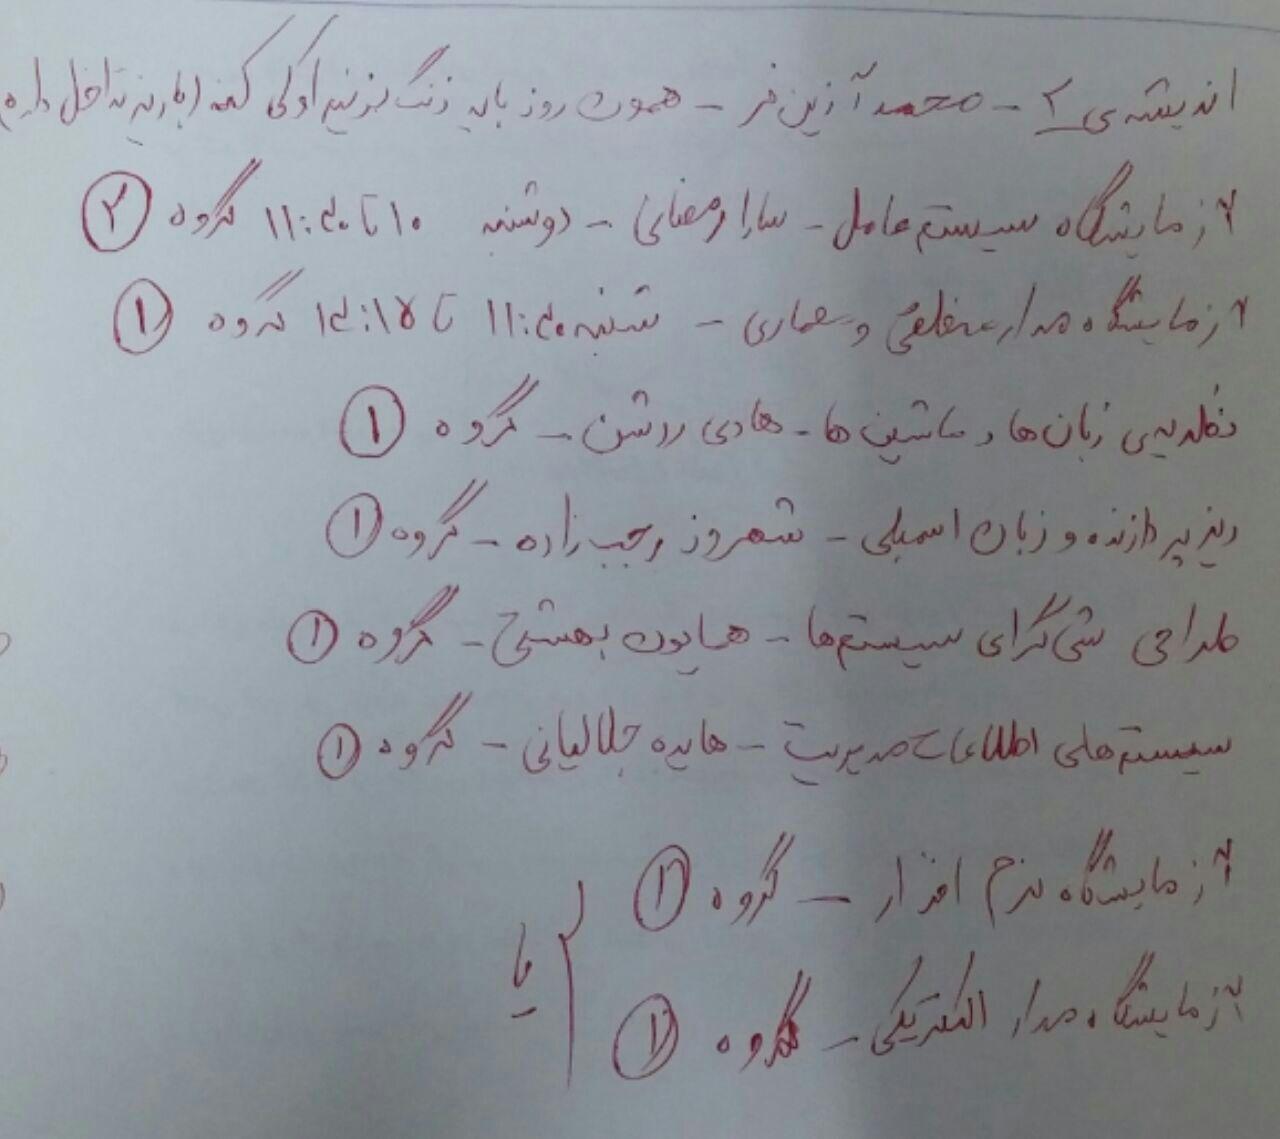 اندیشه‌ی ۲ - محمد آزین فر - همون روز باید زنگ بزنیم اوکی کنه (با ریز تداخل داره)
آزمایشگاه سیستم عامل - سارا رمضانی - دوشنبه ۱۰ تا ۱۱:۴۰ گروه ۲
آزمایشگاه مدار منطقی و معماری - شنبه ۱۱:۴۰ تا ۱۴:۱۵ گروه ۱
نظریه‌ی زبان‌ها و ماشین‌ها - هادی روشن - گروه ۱
ریزپردازنده و زبان اسمبلی - شهروز رجب‌زاده - گروه ۱
طراحی شی‌گرای سیستم‌ها - همایون بهشتی - گروه ۱
سیستم‌های اطلاعات مدیریت - هایده جلالیانی - گروه ۱
آزمایشگاه نرم افزار - گروه ۱
یا
آزمایشگاه مدار الکتریکی - گروه ۱